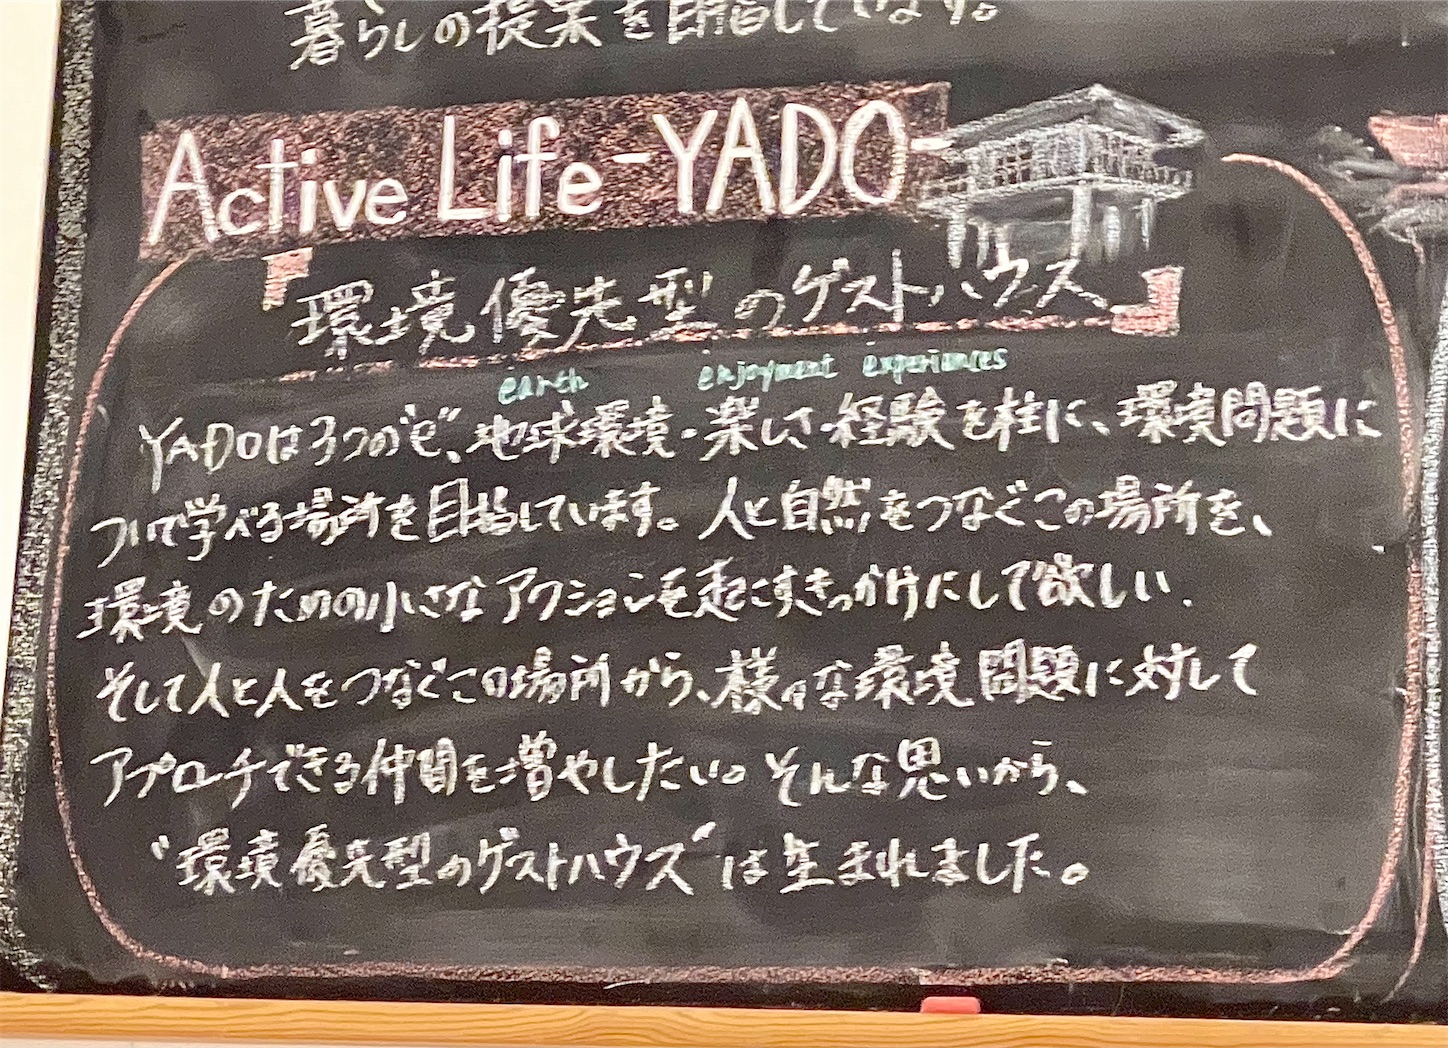 暮らしの提案を目指しています。
Active Life -YADO-
環境優先型のゲストハウス
earth enjoyment experiences
YADOは3つの"e"、地球環境・楽しさ・経験を柱に、環境問題に
ついて学べる場所を目指しています。人と自然をつなぐこの場所を、
環境のための小さなアクションを起こすきっかけにして欲しい.
そして人と人をつなぐこの場所から、様々な環境問題に対して
アプローチできる仲間を増やしたい。そんな思いから、
"環境優先型のゲストハウス"は生まれました。